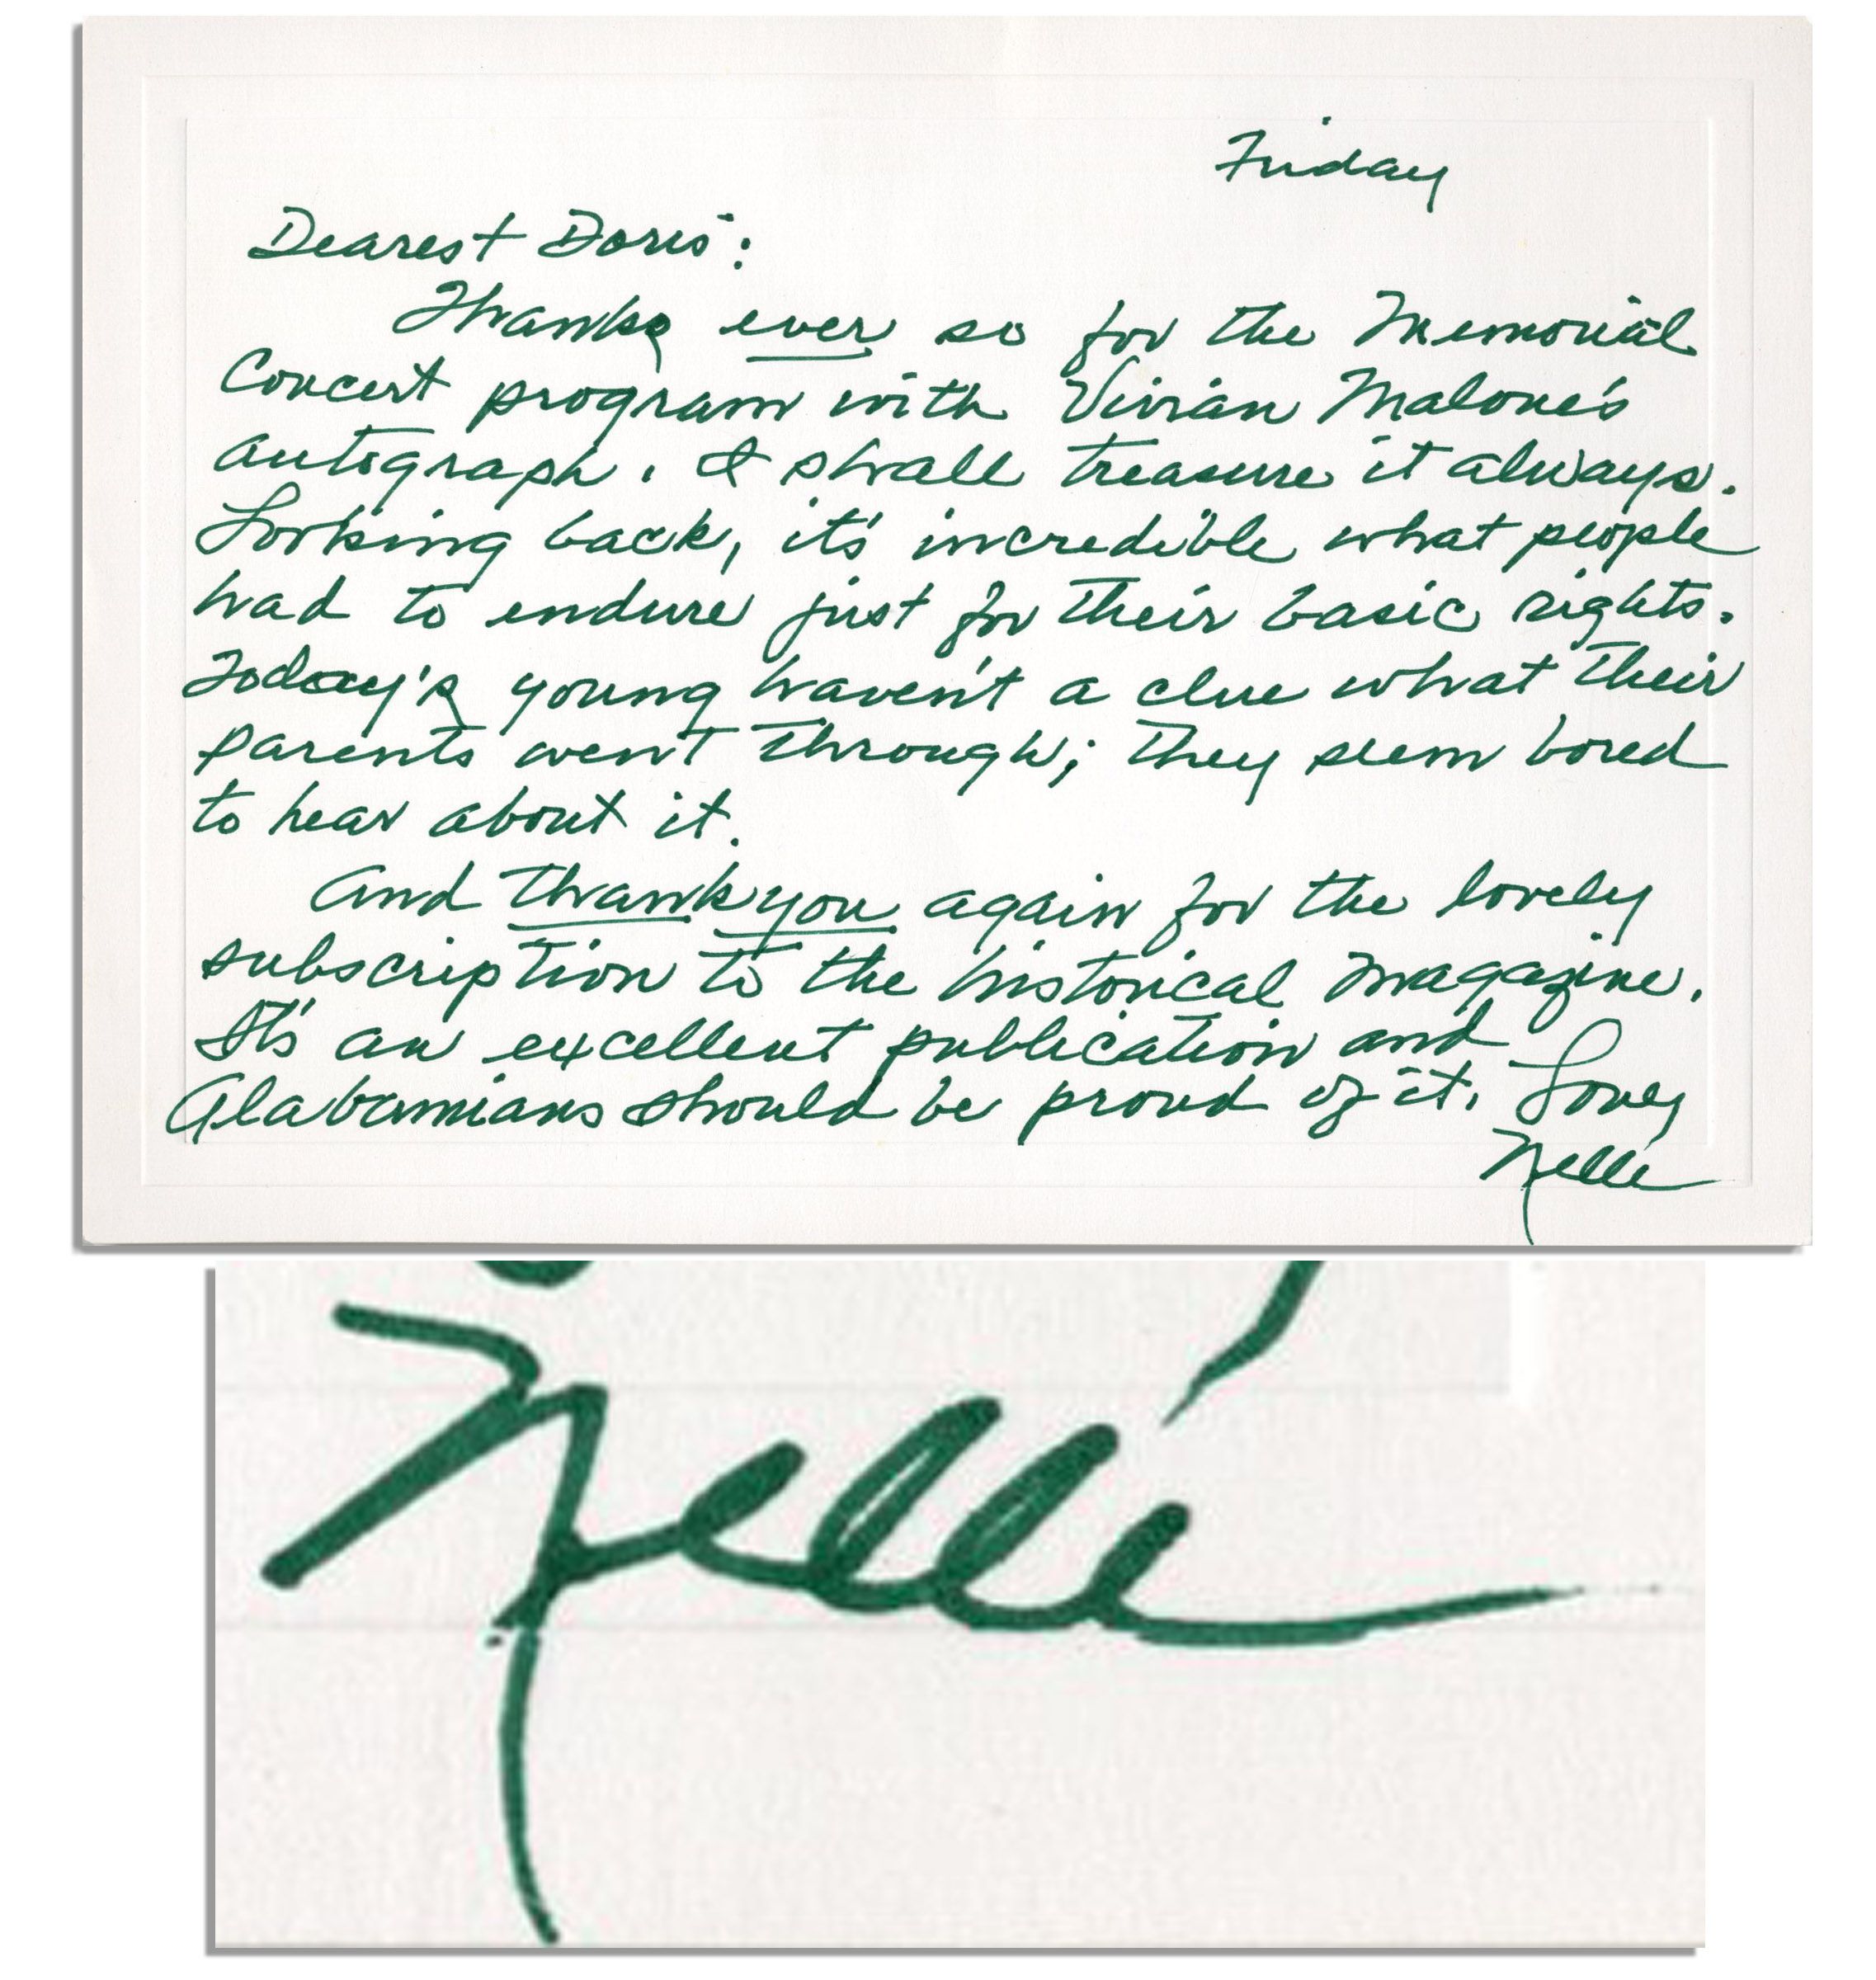 Friday
Dearest Doris:
Thanks ever so for the Memorial
Concert program with Vivian Malone's
autograph. I shall treasure it always.
Looking back, it's incredible what people
had to endure just for their basic rights.
Today's young haven't a clue what their
parents went through; they seem bored
to hear about it.
And thank you again for the lovely
subscription to the historical magazine.
It's an excellent publication and
Alabamians should be proud of it. Love,
Nelle
Nelle